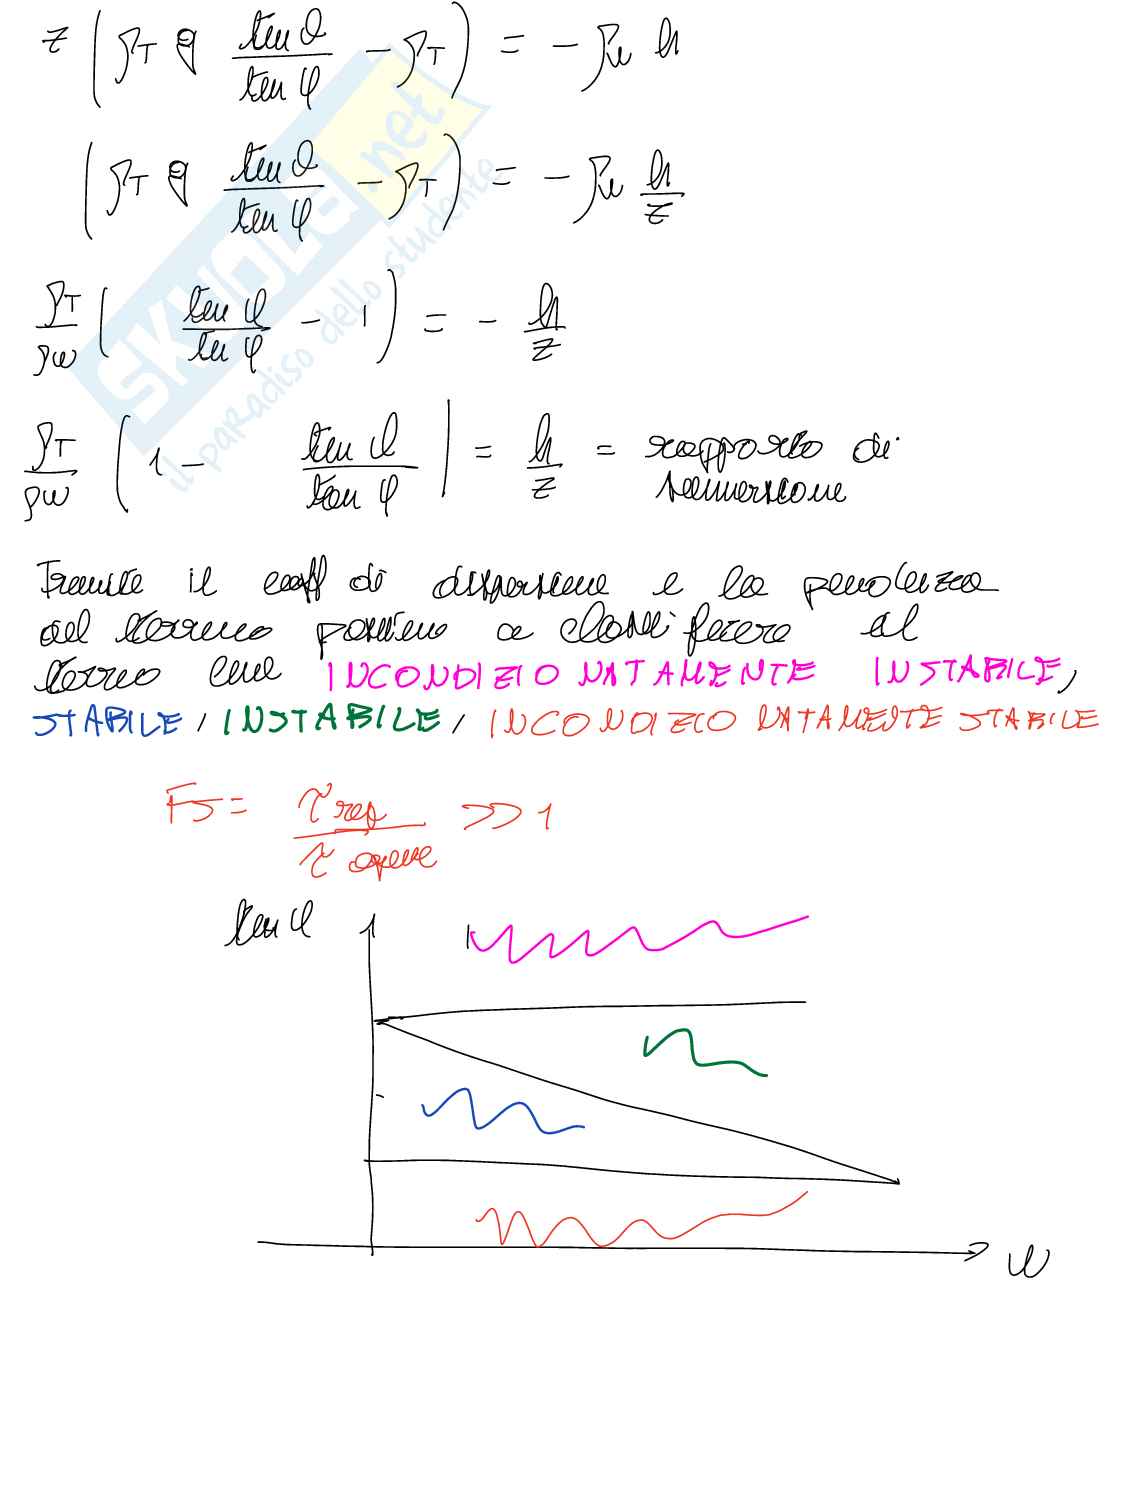 z ( ρT g tan θ / tan φ − ρT ) = − ρw h
( ρT g tan θ / tan φ − ρT ) = − ρw h / z
ρT / ρw ( tan φ / tan φ − 1 ) = − h / z
ρT / ρw ( 1 − tan φ / tan φ ) = h / z = rapporto di
immersione
Tramite il coeff di dispersione e la pendenza
del terreno possiamo a classificare il
terreno come INCONDIZIONATAMENTE INSTABILE,
STABILE, INSTABILE, INCONDIZIONATAMENTE STABILE
FS = τ res / τ agente >> 1
tan φ
w
SKUOLA.net
il paradiso dello studente